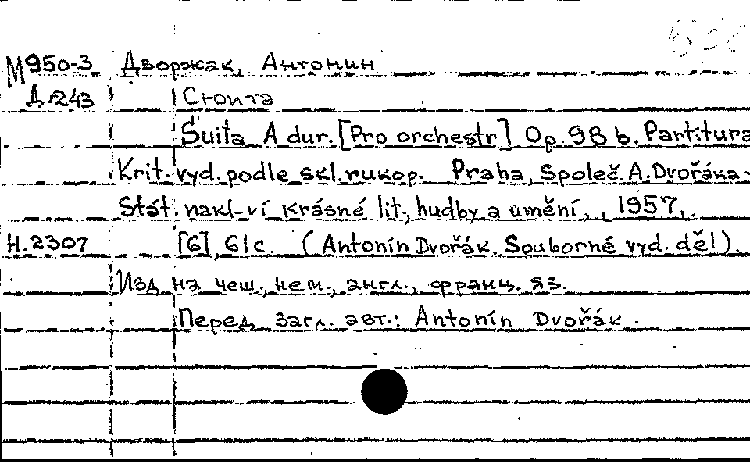 М950-3 Дворжак, Антонин
Д243 Сюита
Suita A dur. [Pro orchestr] Op. 98 b. Partitura
Krit. vyd. podle skl. rukop. Praha, Společ. A. Dvořáka -
Stát. nakl-ví krásné lit., hudby a umění, 1957,
Н.2307 [6], 61 с. (Antonín Dvořák Souborné vyd. děl).
Изд на чеш., нем., англ., франц. яз.
Перед загл. авт.: Antonín Dvořák.